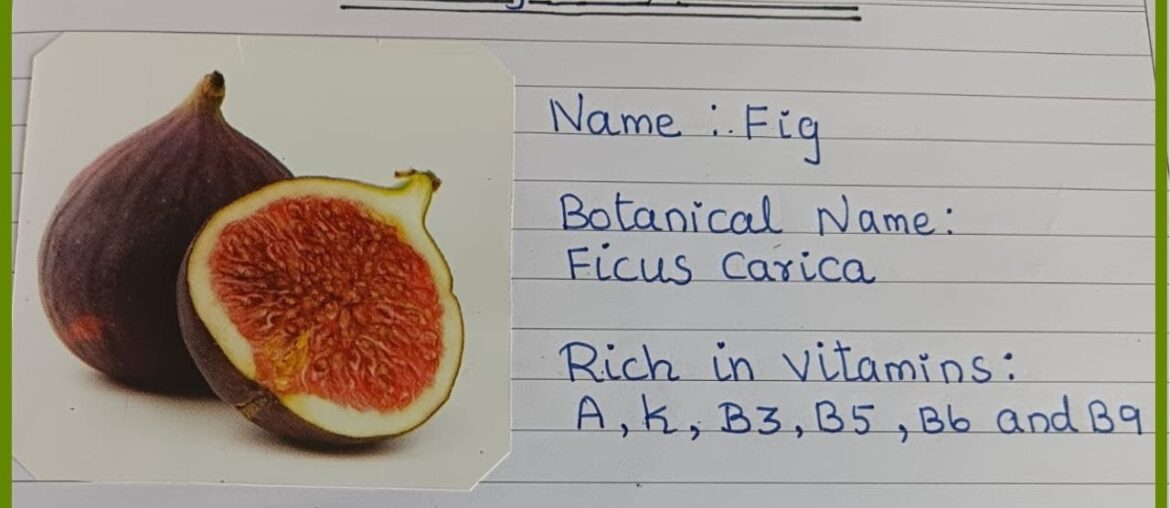 Name : Fig
Botanical Name:
Ficus Carica
Rich in vitamins:
A, K, B3, B5, B6 and B9